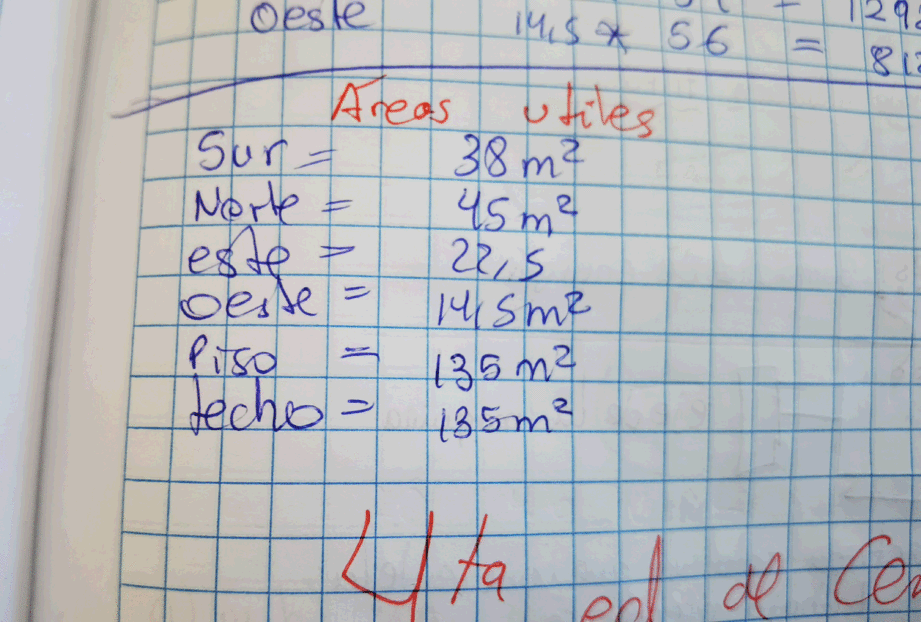 Oeste 14,5 * 56 = 812
Areas utiles
Sur = 38 m²
Norte = 45 m²
este = 22,5
oeste = 14,5 m²
Piso = 135 m²
techo = 135 m²
4ta ed de